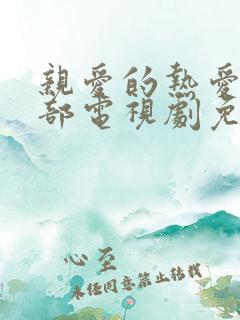 親愛的熱愛
部電視劇免
心至
未經同意禁止轉載